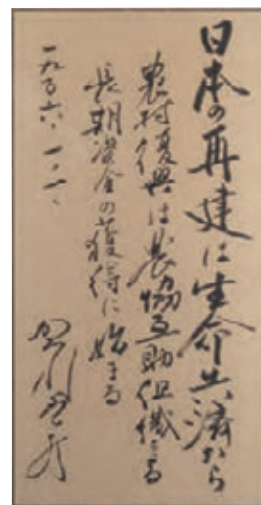 日本の再建は生命共済から
農村復興は農協互助組織
長期資金の獲得に始まる
一九五六・一・一
賀川豊彦